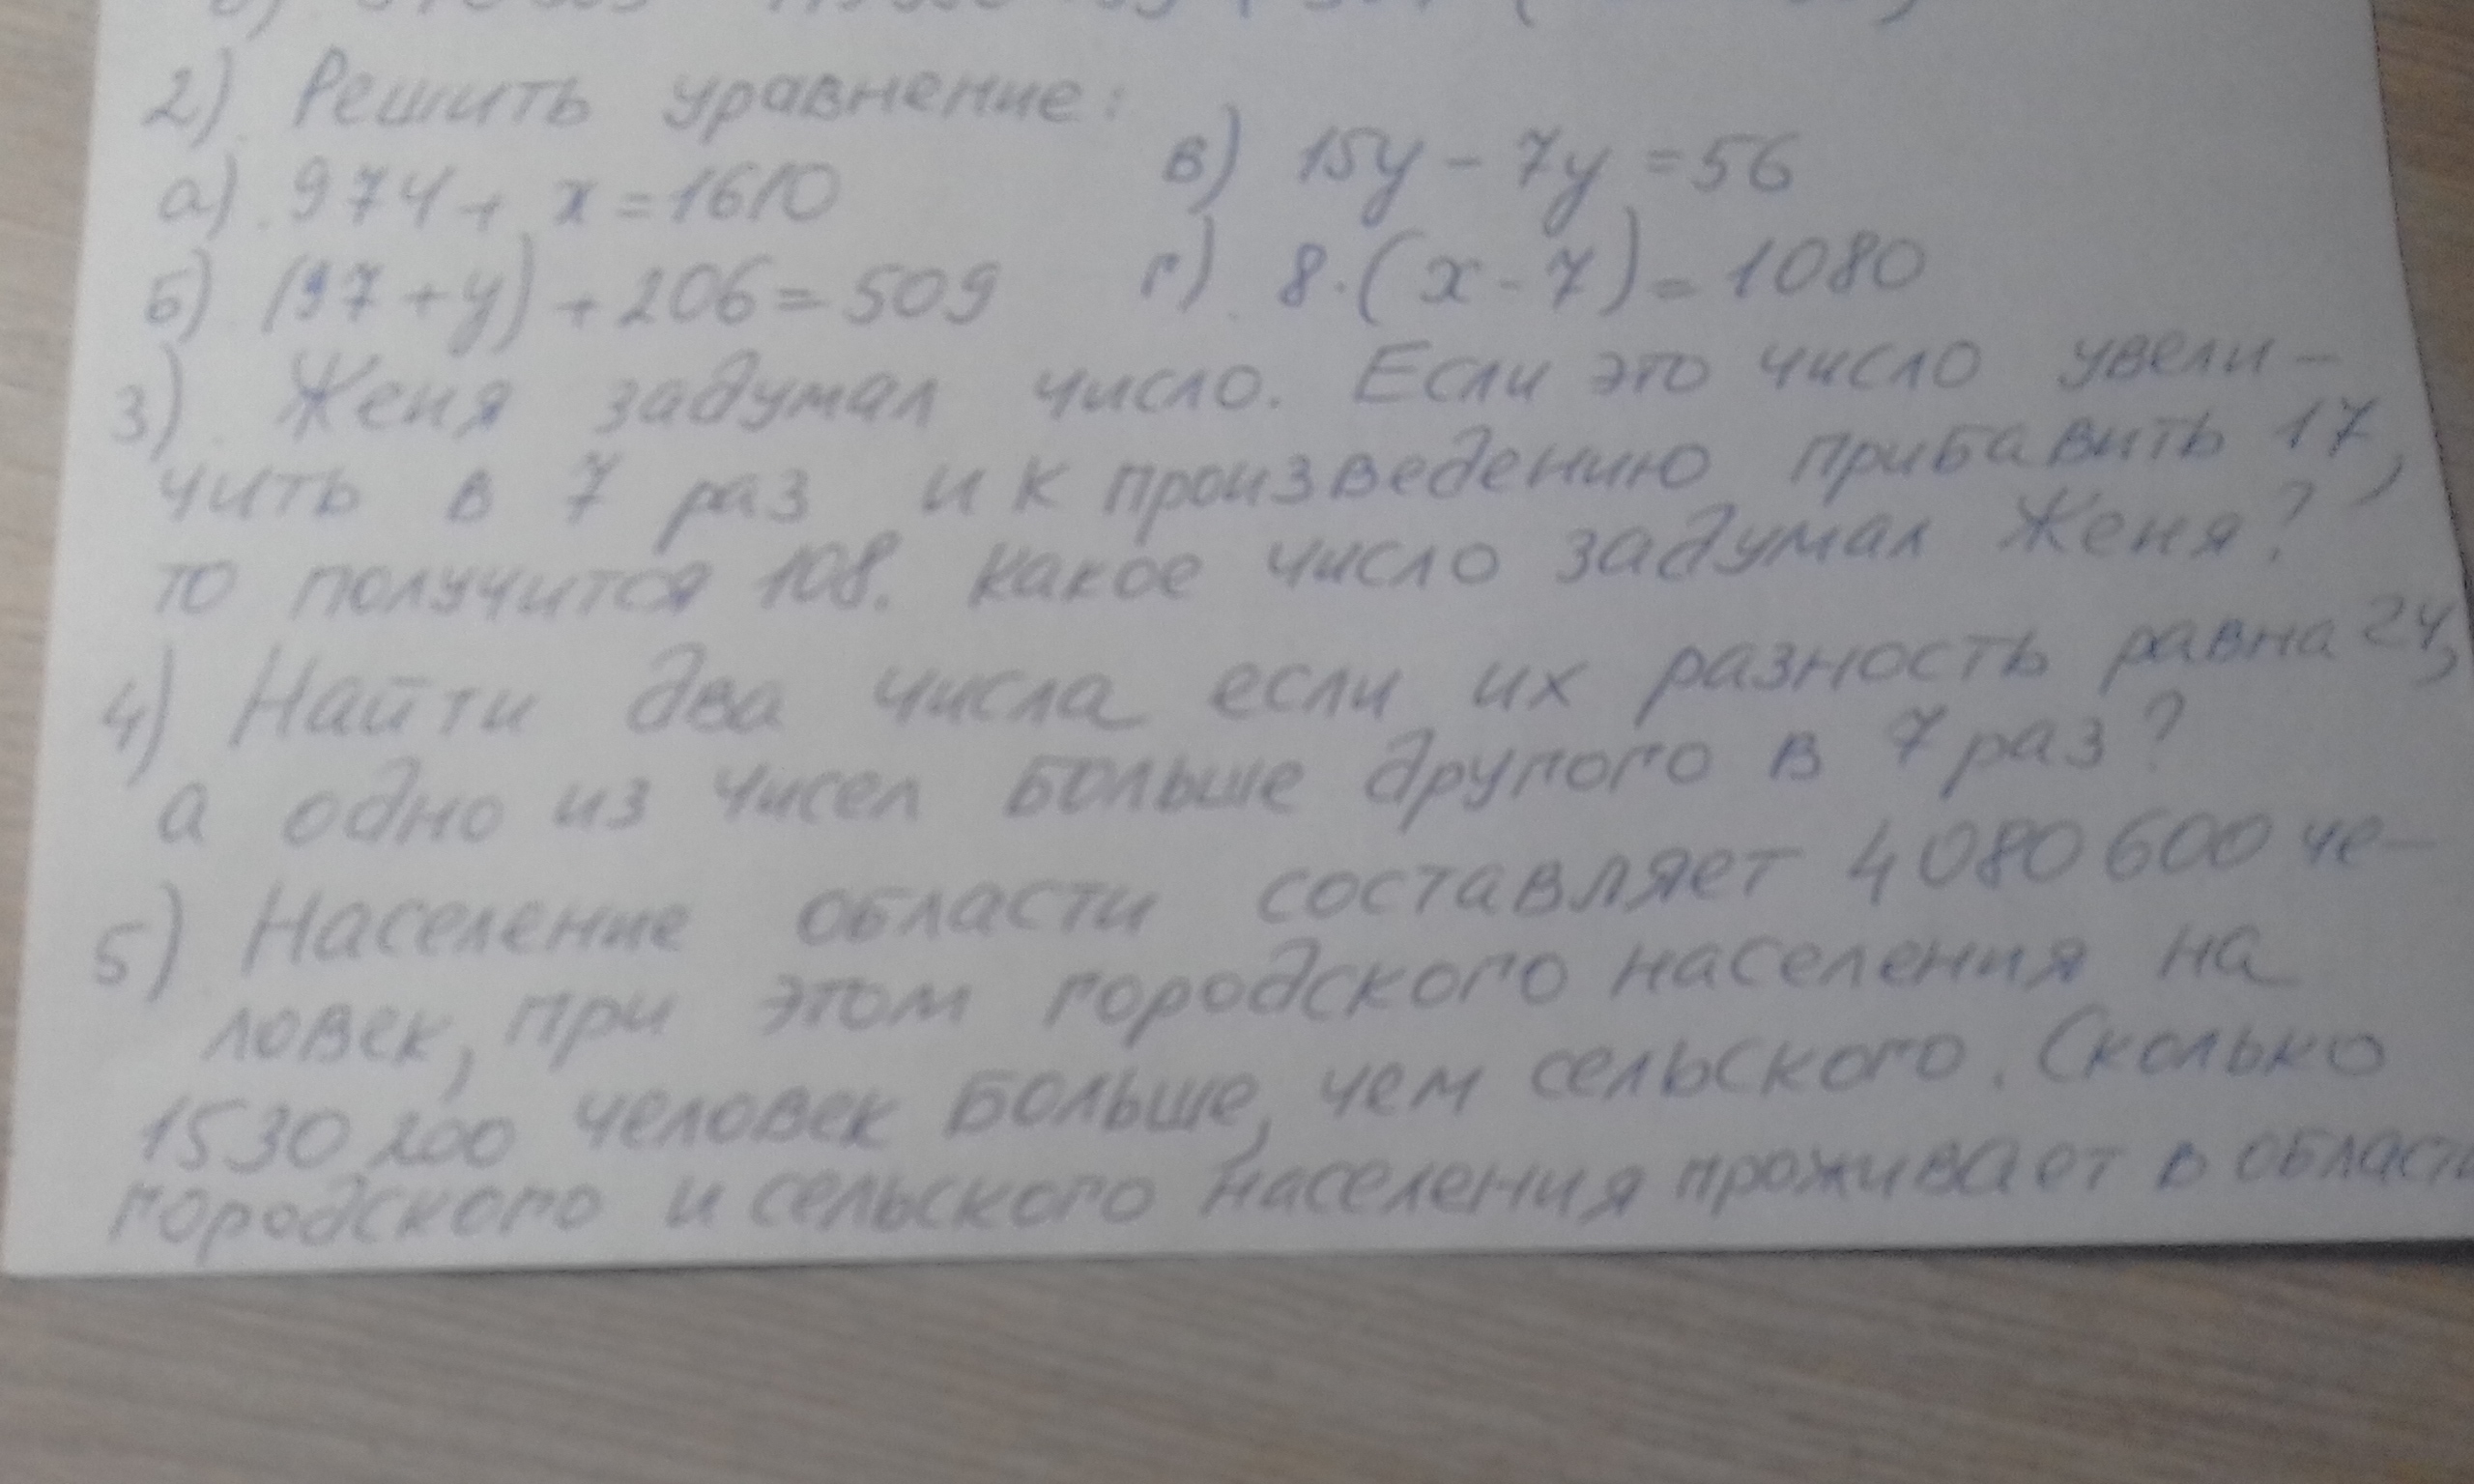 2) Решить уравнение:
а) 974 + x = 1610
в) 15y - 7y = 56
б) (97 + y) + 206 = 509
г) 8·(x - 7) = 1080
3) Женя задумал число. Если это число увели-
чить в 7 раз и к произведению прибавить 17,
то получится 108. Какое число задумал Женя?
4) Найти два числа если их разность равна 24,
а одно из чисел больше другого в 7 раз?
5) Население области составляет 4 080 600 че-
ловек, при этом городского населения на
1530 200 человек больше, чем сельского. Сколько
городского и сельского населения проживает в области